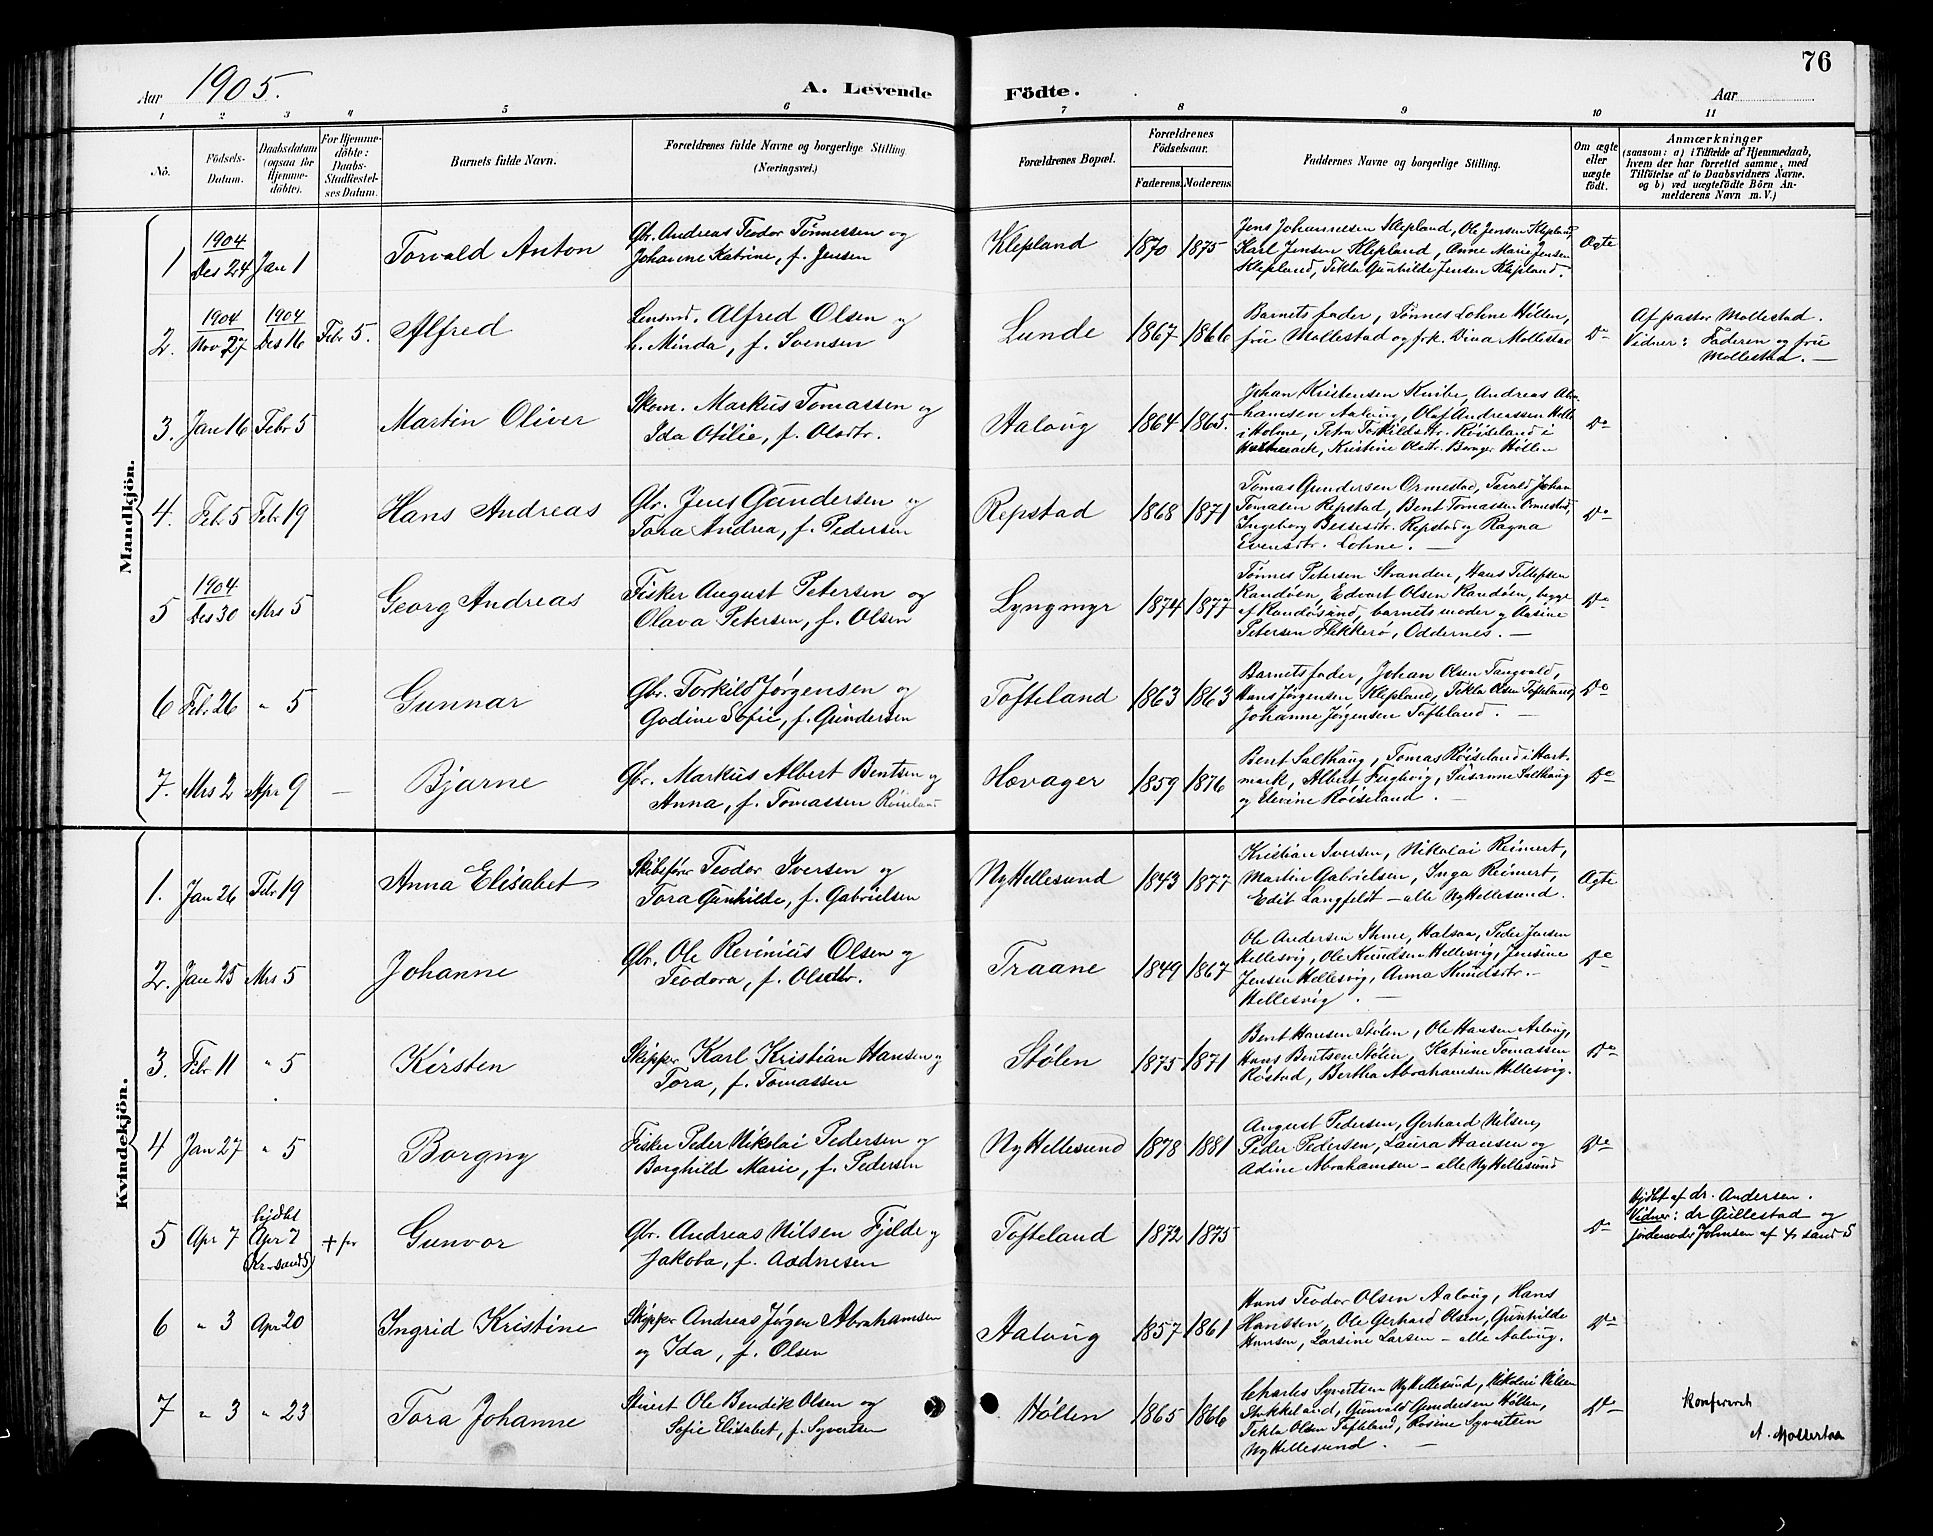 76
Aar 1905.
A. Levende Födte.
Aar
1 2 3 4 5 6 7 8 9 10 11
Nö.
Födsels-
Datum.
Daabsdatum
(ogsaa for
Hjemme-
döbte).
For Hjemme-
döbte:
Daabs-
Stadfæstel-
ses Datum.
Barnets fulde Navn.
Forældrenes fulde Navne og borgerlige Stilling
(Næringsvei.)
Forældrenes Bopæl.
Forældrenes
Födselsaar.
Faderens. Moderens
Faddernes Navne og borgerlige Stilling.
Om ægte
eller
uægte
födt.
Anmærkninger
(saasom: a) i Tilfælde af Hjemmedaab,
hvem der har forrettet samme, med
Tilföielse af to Daabsvidners Navne,
og b) ved uægtefödte Börn An-
melderens Navn m.V.)
Mandkjön.
1 1904 Des 24 Jan 1 Torvald Anton
Gbr. Andreas Teodor Tønnessen og
Johanne Katrine, f. Jensen
Klepland 1870 1875
Jens Johannesen Klepland, Ole Jensen Klepland,
Karl Jensen Klepland, Anne Marie Jensen
Klepland, Tekla Gunhilde Jensen Klepland.
Ægte
2. 1904 Nov 27 1904 Des 16 Febr 5. Alfred
Lensmd. Alfred Olsen og
h. Minda, f. Svensen
Lunde 1867 1866
Barnets fader, Tønnes Lohne Høllen,
fru Mollestad og frk. Dina Mollestad
Do
Af pastor Mollestad.
Vidner: Faderen og fru
Mollestad. —
3. Jan 16 Febr 5 Martin Oliver
Skom. Markus Tomassen og
Ida Otilie, f. Olsdtr.
Aalvug 1864 1865.
Johan Kristensen Andreas Abra-
hamsen Aalvug, Olaf Andreassen
i Holme, Petra Torkildsdtr. Røiseland i
Kristine Olsdtr. Høllen
Do
4. Febr 5 Febr 19 Hans Andreas
Gbr. Jens Gundersen og
Tora Andrea, f. Pedersen
Repstad 1868 1871
Tomas Gundersen Ormestad, Tarald Johan
Tomasen Repstad, Bent Tomassen Ormestad,
Ingeborg Bessesdtr. Repstad og Ragna
Evensdtr. Lohne. —
Do
5 1904 Des 30 Mrs 5 Georg Andreas
Fisker August Petersen og
Olava Petersen, f. Olsen
Lyngmyr 1874 1877
Tønnes Petersen Stranden, Hans Tellefsen
Randøen, Edvart Olsen Randøen, begge
af Randøsund, barnets moder og Aasine
Petersen Flekkerø, Oddernes. —
Do
6 Febr 26 " 5 Gunnar
Gbr. Torkild Jørgensen og
Godine Sofie, f. Gundersen
Tofteland 1863 1863
Barnets fader, Johan Olsen Tangvald,
Hans Jørgensen Klepland, Tekla Olsen Tofteland,
Johanne Jørgensen Tofteland. —
Do
7. Mrs 2 Apr 9 — Bjarne
Gbr. Markus Albert Bentsen og
Anna, f. Tomassen Røiseland
Hævager 1859 1876
Bent Salthaug, Tomas Røiseland i Hart-
mark, Albert Fuglevig, Susanne Salthaug
og Elevine Røiseland. —
Do
Kvindekjön.
1. Jan 26 Febr 19 Anna Elisabet
Skibsfører Teodor Iversen og
Tora Gunhilde, f. Gabrielsen
Ny Hellesund 1843 1877
Kristian Iversen, Nikolai Reinert,
Martin Gabrielsen, Inga Reinert,
Edit Langfeldt — alle Ny Hellesund.
Ægte
2. Jan 25 Mrs 5 Johanne
Gbr. Ole Revinius Olsen og
Teodora, f. Olsdtr.
Traane 1849 1867
Ole Andersen Ihme, Halsaa, Peder Jensen
Hellesvig, Ole Knudsen Hellesvig, Jensine
Jensen Hellesvig, Anna Knudsdtr.
Hellesvig. —
Do
3. Febr 11 " 5 Kirsten
Skipper Karl Kristian Hansen og
Tora, f. Tomassen
Stølen 1875 1871
Bent Hansen Stølen, Ole Hansen Aalvug,
Hans Bentsen Stølen, Katrine Tomassen
Røstad, Bertha Abrahamsen Hellesvig.
Do
4 Jan 27 " 5 Borgny
Fisker Peder Nikolai Pedersen og
Borghild Marie, f. Pedersen
Ny Hellesund 1878 1881
August Pedersen, Gerhard Nilsen,
Peder Pedersen, Laura Hansen og
Adine Abrahamsen — alle Ny Hellesund
Do
5 Apr 7 hjdbt Apr 7 (Kr.sand S) + før Gunvor
Gbr. Andreas Nilsen Fjelde og
Jakoba, f. Aadnesen
Tofteland 1872 1875
Do
Hjdbt af dr. Andersen.
Vidner: dr Gullestad og
jordemoder Johnsen af Kr sand S
6 " 3 Apr 20 Ingrid Kristine
Skipper Andreas Jørgen Abrahamsen
og Ida, f. Olsen
Aalvug 1857 1861
Hans Teodor Olsen Aalvug, Hans
Hanssen, Ole Gerhard Olsen, Gunhilde
Hansen, Larsine Larsen — alle Aalvug.
Do
7 " 3 " 23 Tora Johanne
Stuert Ole Bendik Olsen og
Sofie Elisabet, f. Syvertsen
Høllen 1865 1866
Charles Syvertsen Ny Hellesund, Nikolai Nilsen
Stokkeland, Gunvald Gundersen Høllen,
Tekla Olsen Tofteland, Rosine Syvertsen
Ny Hellesund. —
Do
Konfereret
A. Mollestad